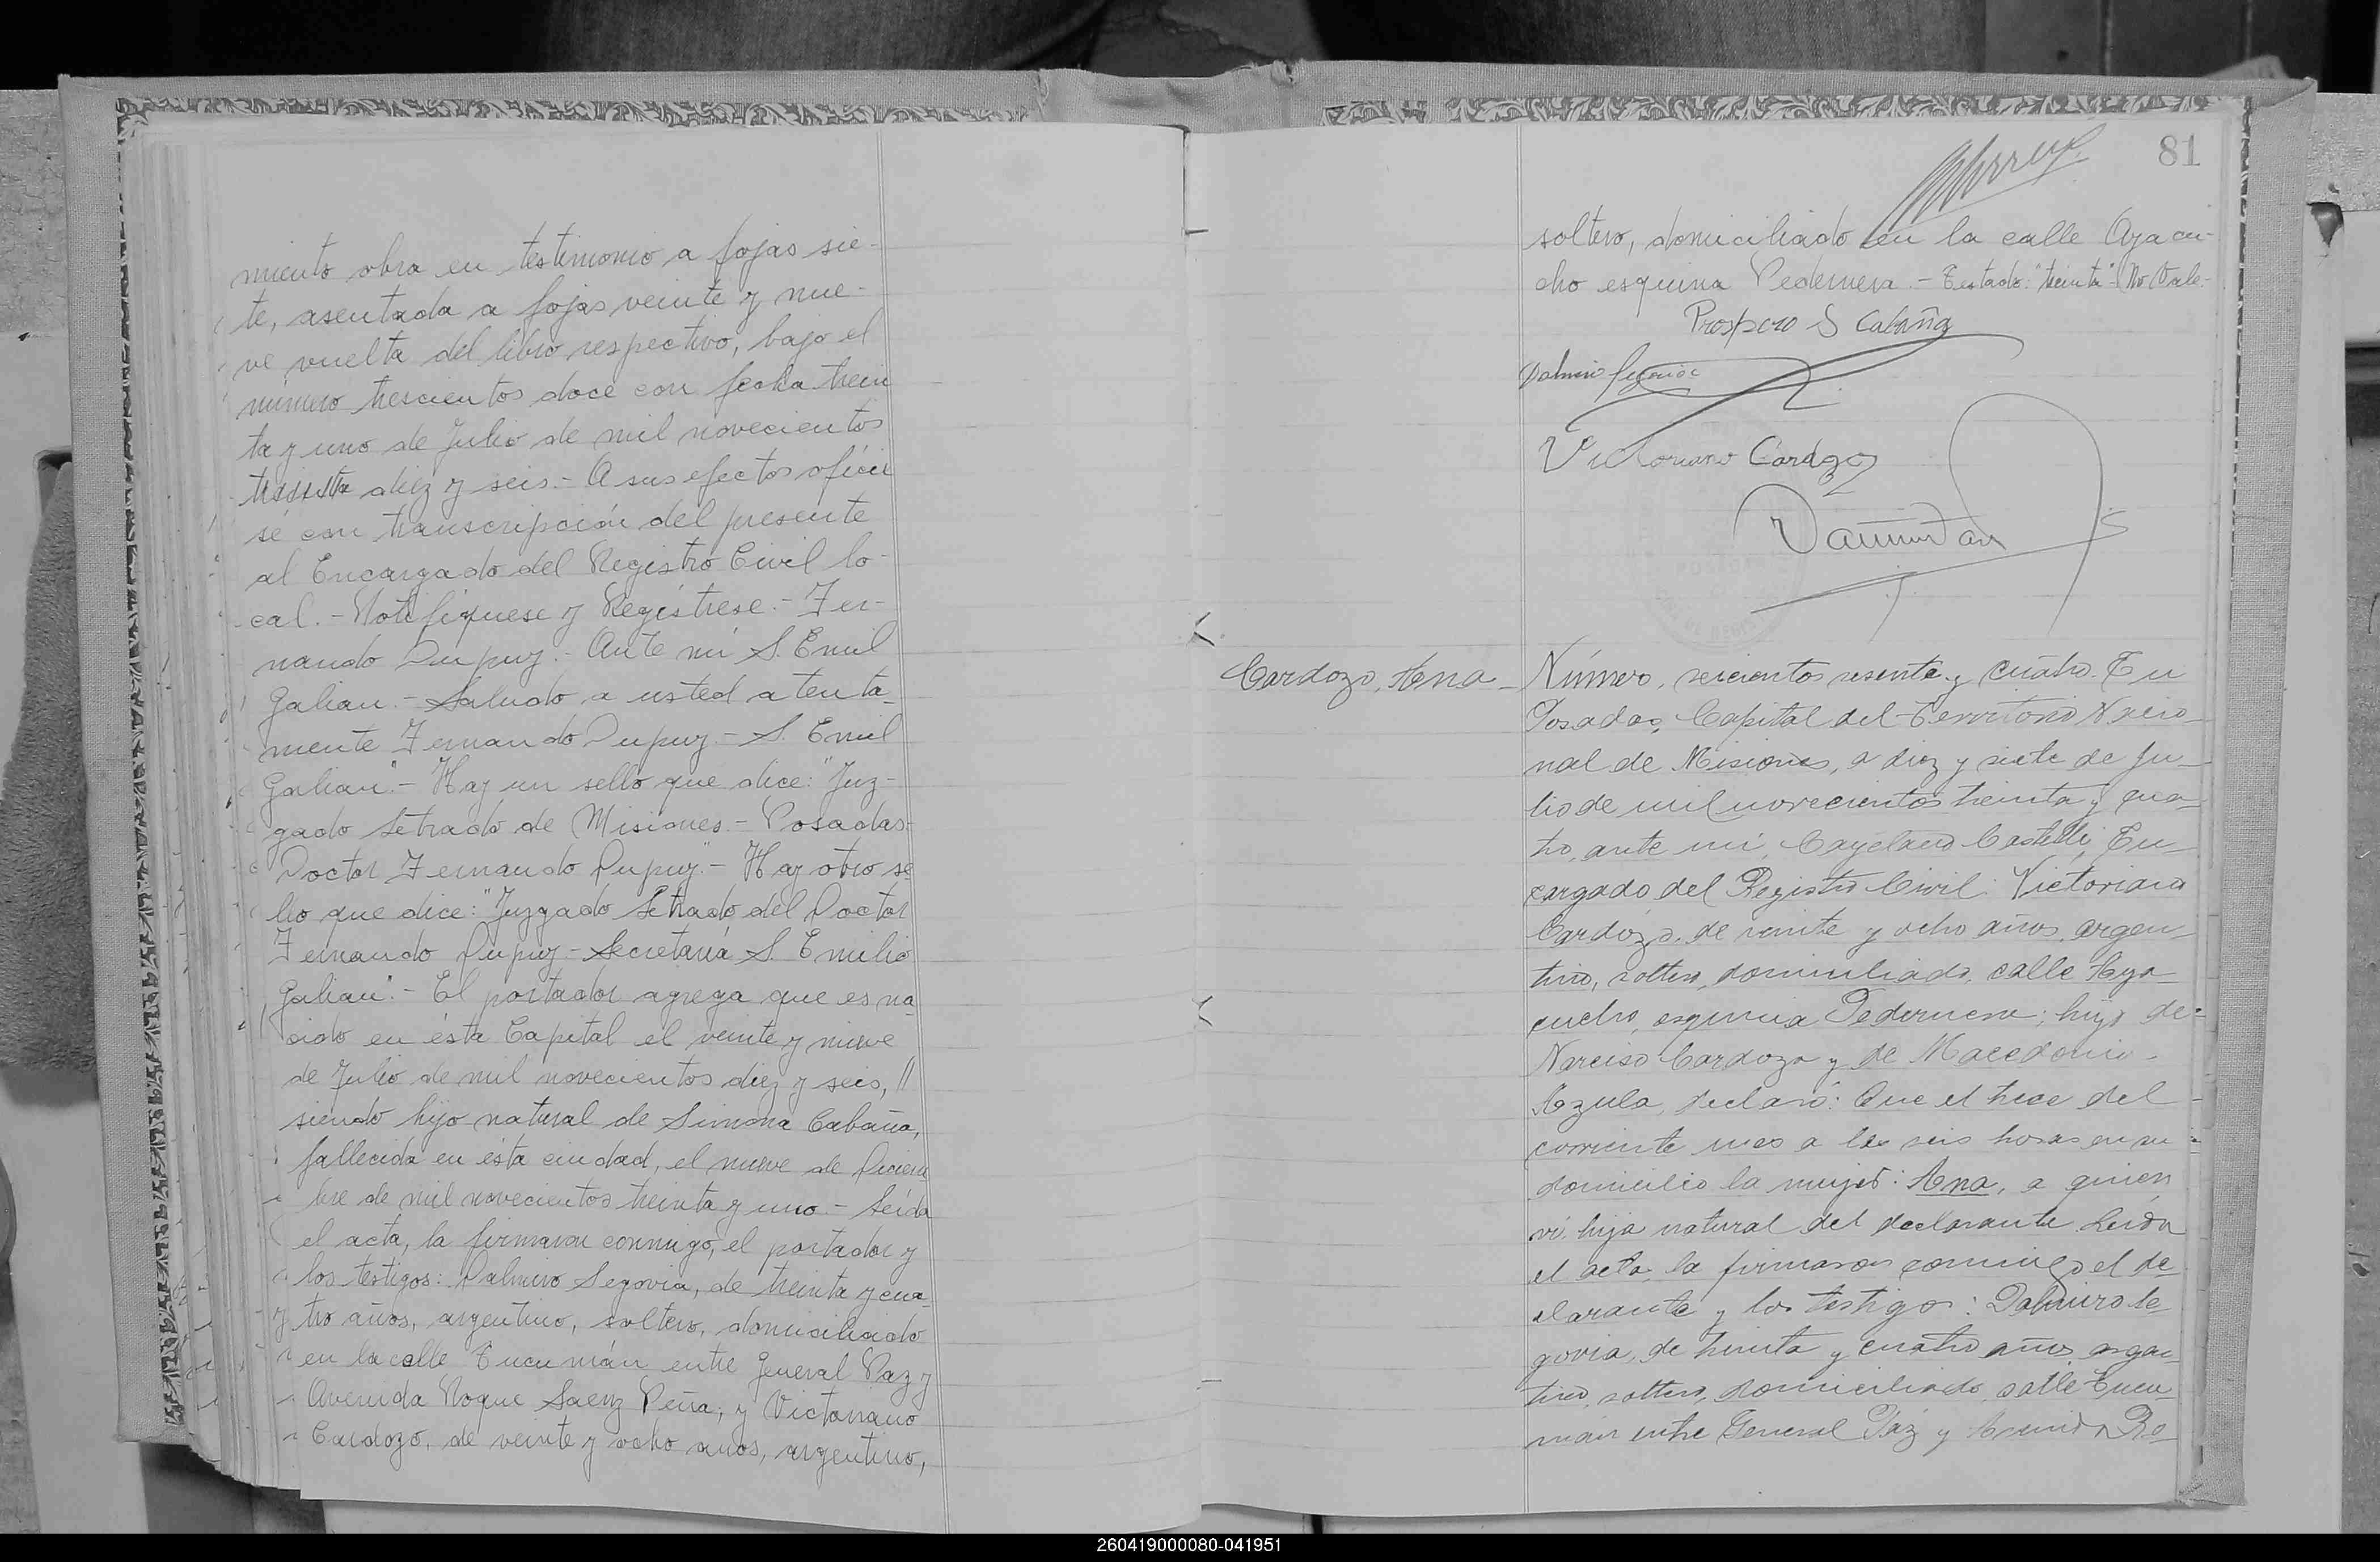 miento obra en testimonio a fojas sie-
te, asentada a fojas veinte y nue-
ve vuelta del libro respectivo, bajo el
número trescientos doce con fecha trein
ta y uno de Julio de mil novecientos
treinta diez y seis.- A sus efectos ofície
se con transcripción del presente
al Encargado del Registro Civil lo-
cal.- Notifíquese y Regístrese.- Fer-
nando Dupuy.- Ante mí S. Emil
Galian.- Saludo a usted atenta-
mente Fernando Dupuy - S. Emil
Galian".- Hay un sello que dice: "Juz-
gado Letrado de Misiones.- Posadas-
Doctor Fernando Dupuy".- Hay otro se
llo que dice: "Juzgado Letrado del Doctor
Fernando Dupuy - Secretaría S. Emilio
Galian".- El portador agrega que es na
cido en ésta Capital el veinte y nueve
de Julio de mil novecientos diez y seis, //
siendo hijo natural de Simona Cabaña,
fallecida en ésta ciudad, el nueve de Diciem
bre de mil novecientos treinta y uno.- Leída
el acta, la firmaron conmigo, el portador y
los testigos: Dalmiro Segovia, de treinta y cua
tro años, argentino, soltero, domiciliado
en la calle Tucumán entre General Paz y
Avenida Roque Saenz Peña; y Victoriano
Cardozo, de veinte y ocho años, argentino,
81
soltero, domiciliado en la calle Ayacu-
cho esquina Pedernera.- Testado: "treinta": No Vale.-
Prospero S Cabaña
Dalmiro Segovia
Victoriano Cardozo
Cardozo, Ana
Número, seicientos sesenta y cuatro. En
Posadas, Capital del Territorio Nacio-
nal de Misiones, a diez y siete de Ju-
lio de mil novecientos treinta y cua-
tro, ante mí, Cayetano Castelli, En-
cargado del Registro Civil: Victoriano
Cardozo, de veinte y ocho años, argen-
tino, soltero, domiciliado, calle Aya-
cucho, esquina Pedernera; hijo de
Narciso Cardozo y de Macedonia
Azula, declaró: Que el trece del
corriente mes a las seis horas en su
domicilio la mujer: Ana, a quien
ví, hija natural del declarante. Leída
el acta, la firmaron conmigo el de
clarante y los testigos: Dalmiro Se
govia, de treinta y cuatro años, argen
tino, soltero, domiciliado, calle Tucu
mán entre General Paz y Avenida Ro
260419000080-041951